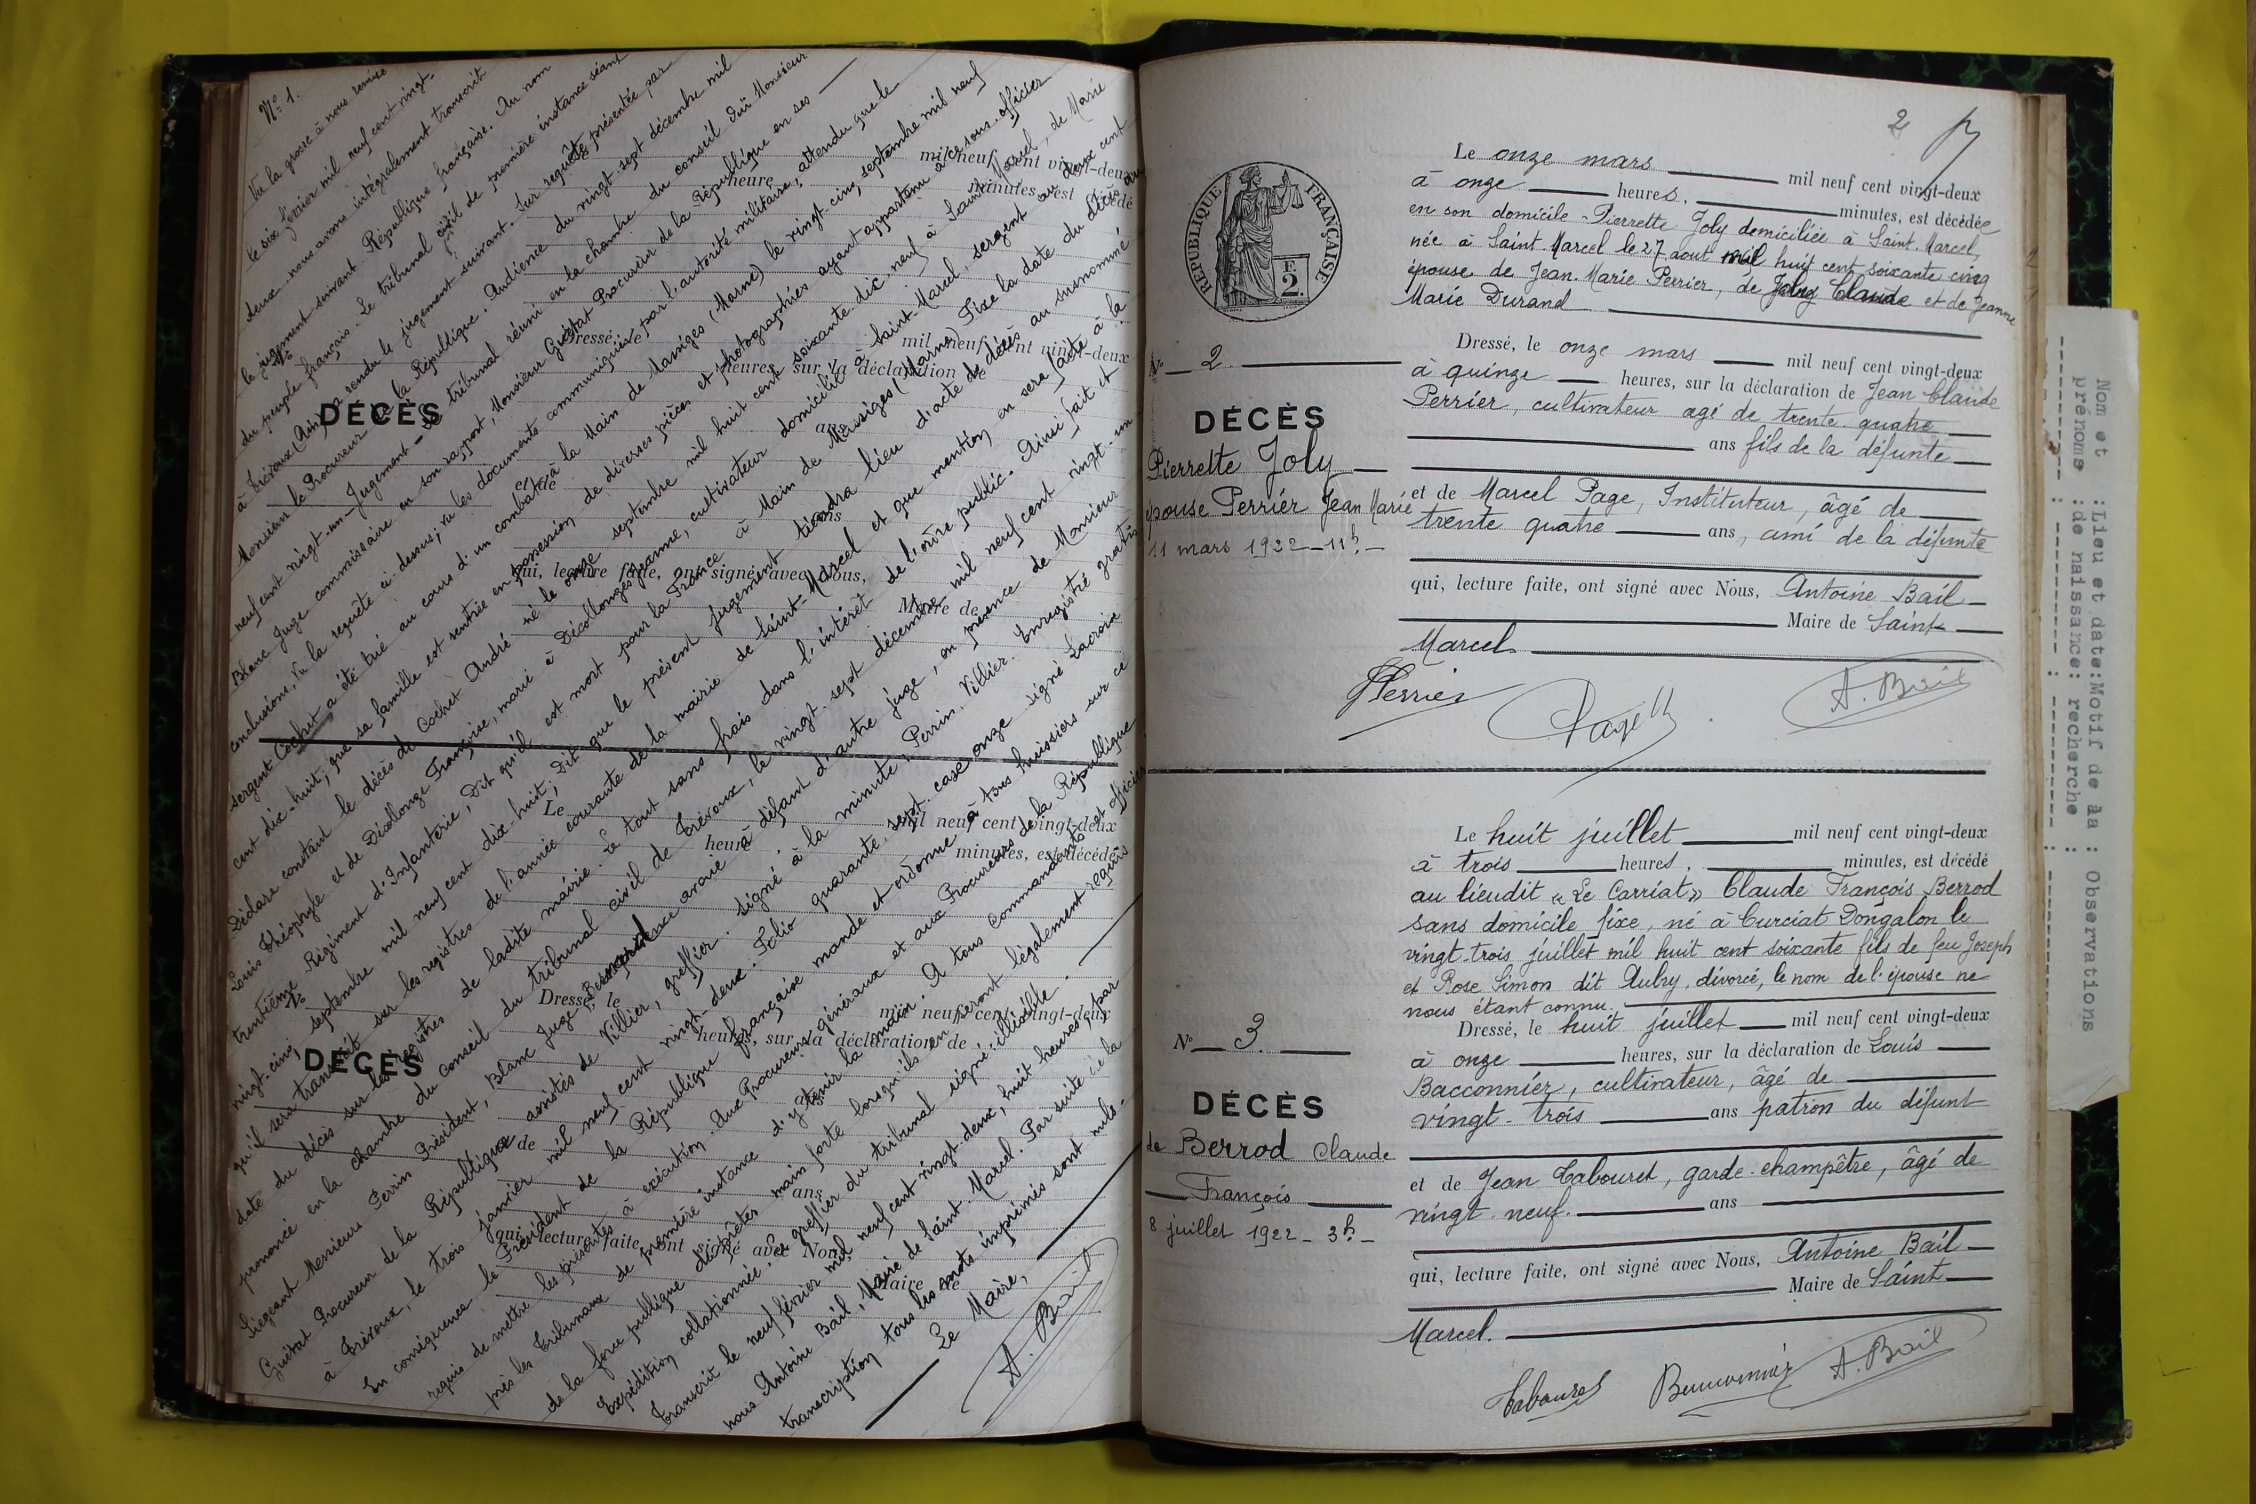 N° 1.
Vu la grosse à nous remise
le six février mil neuf cent vingt-
deux nous avons intégralement transcrit
le jugement suivant République française. Au nom
du peuple français. Le tribunal civil de première instance séant
à Trévoux (Ain) a rendu le jugement suivant. Sur requête présentée par
Monsieur le Procureur de la République. Audience du vingt-sept décembre mil
neuf cent vingt-un. Jugement. Le tribunal réuni en la chambre du conseil Ouï Monsieur
Blanc Juge commissaire en son rapport, Monsieur Guétat Procureur de la République en ses
conclusions, Vu la requête ci-dessus, vu les documents communiqués par l'autorité militaire, attendu que le
sergent Cochet a été tué au cours d'un combat à la Main de Massiges (Marne) le vingt-cinq septembre mil neuf
cent dix-huit, que sa famille est rentrée en possession de diverses pièces et photographies ayant appartenu à ce sous-officier
Déclare constant le décès de Cochet André né le onze septembre mil huit cent soixante-dix-neuf à Saint-Marcel, de Marie
Louis Théophyle et de Décollonge Françoise, marié à Décollonges Jeanne, cultivateur domicilié à Saint-Marcel, sergent au deux cent
trentième Régiment d'Infanterie, Dit qu'il est mort pour la France à Main de Massiges (Marne) Fixe la date du décès au
vingt-cinq septembre mil neuf cent dix-huit, Dit que le présent jugement tiendra lieu d'acte de décès au susnommé
qu'il sera transcrit sur les registres de l'année courante de la mairie de Saint-Marcel et que mention en sera faite à la
date du décès sur les registres de ladite mairie. Le tout sans frais dans l'intérêt de l'ordre public. Ainsi fait et
prononcé en la chambre du conseil du tribunal civil de Trévoux, le vingt-sept décembre mil neuf cent vingt-un
Siégeant Messieurs Perrin Président, Blanc Juge, avoué à défaut d'autre juge, en présence de Monsieur
Guétat Procureur de la République assistés de Villier, greffier. Signé à la minute: Perrin, Villier. Enregistré gratis
à Trévoux, le trois janvier mil neuf cent vingt-deux. Folio quarante-sept case onze signé Lacroix
En conséquence le Président de la République française mande et ordonne à tous huissiers sur ce
requis de mettre les présentes à exécution. Aux Procureurs généraux et aux Procureurs de la République
près les Tribunaux de première instance d'y tenir la main. A tous Commandants et officiers
de la force publique de prêter main forte lorsqu'ils en seront légalement requis
Expédition collationnée. Le greffier du tribunal signé: illisible.
Transcrit le neuf février mil neuf cent vingt-deux, huit heures, par
nous Antoine Bail, Maire de Saint-Marcel. Par suite de la
transcription tous les mots imprimés sont nuls.
Le Maire,
A. Bail
mil neuf cent vingt-deux
heure
minutes, est décédé
Dressé, le
mil neuf cent vingt-deux
heures, sur la déclaration de
DÉCÈS
ans
et de
ans
qui, lecture faite, ont signé avec Nous,
Maire de
Le
mil neuf cent vingt-deux
heure
minutes, est décédé
Dressé, le
mil neuf cent vingt-deux
heures, sur la déclaration de
DÉCÈS
et de
ans
qui, lecture faite, ont signé avec Nous,
Maire de
2
RÉPUBLIQUE FRANÇAISE
F.
2.
Le onze mars mil neuf cent vingt-deux
à onze heures, minutes, est décédée
en son domicile - Pierrette Joly domiciliée à Saint-Marcel,
née à Saint-Marcel le 27 aout mil huit cent soixante cinq
épouse de Jean-Marie Perrier, de Joly Claude et de Jeanne
Marie Durand
N° 2.
DÉCÈS
Pierrette Joly
épouse Perrier Jean Marie
11 mars 1922 - 11h. -
Dressé, le onze mars mil neuf cent vingt-deux
à quinze heures, sur la déclaration de Jean Claude
Perrier, cultivateur agé de trente-quatre
ans fils de la défunte
et de Marcel Page, Instituteur, âgé de
trente quatre ans, ami de la défunte
qui, lecture faite, ont signé avec Nous, Antoine Bail
Maire de Saint-
Marcel.
Perrier
Page
A. Bail
Le huit juillet mil neuf cent vingt-deux
à trois heures minutes, est décédé
au lieudit « Le Carriat » Claude François Berrod
sans domicile fixe, né à Curciat Dongalon le
vingt-trois juillet mil huit cent soixante fils de feu Joseph
et Rose Simon dit Aubry, divorcé, le nom de l'épouse ne
nous étant connu.
N° 3.
DÉCÈS
de Berrod Claude
François
8 juillet 1922 - 3h. -
Dressé, le huit juillet mil neuf cent vingt-deux
à onze heures, sur la déclaration de Louis
Bacconnier, cultivateur, âgé de
vingt-trois ans patron du défunt
et de Jean Tabouret, garde-champêtre, âgé de
vingt-neuf. ans
qui, lecture faite, ont signé avec Nous, Antoine Bail
Maire de Saint
Marcel.
Tabouret
Bacconnier
A. Bail
Nom et :Lieu et date:Motif de la : Observations
prénoms :de naissance: recherche :